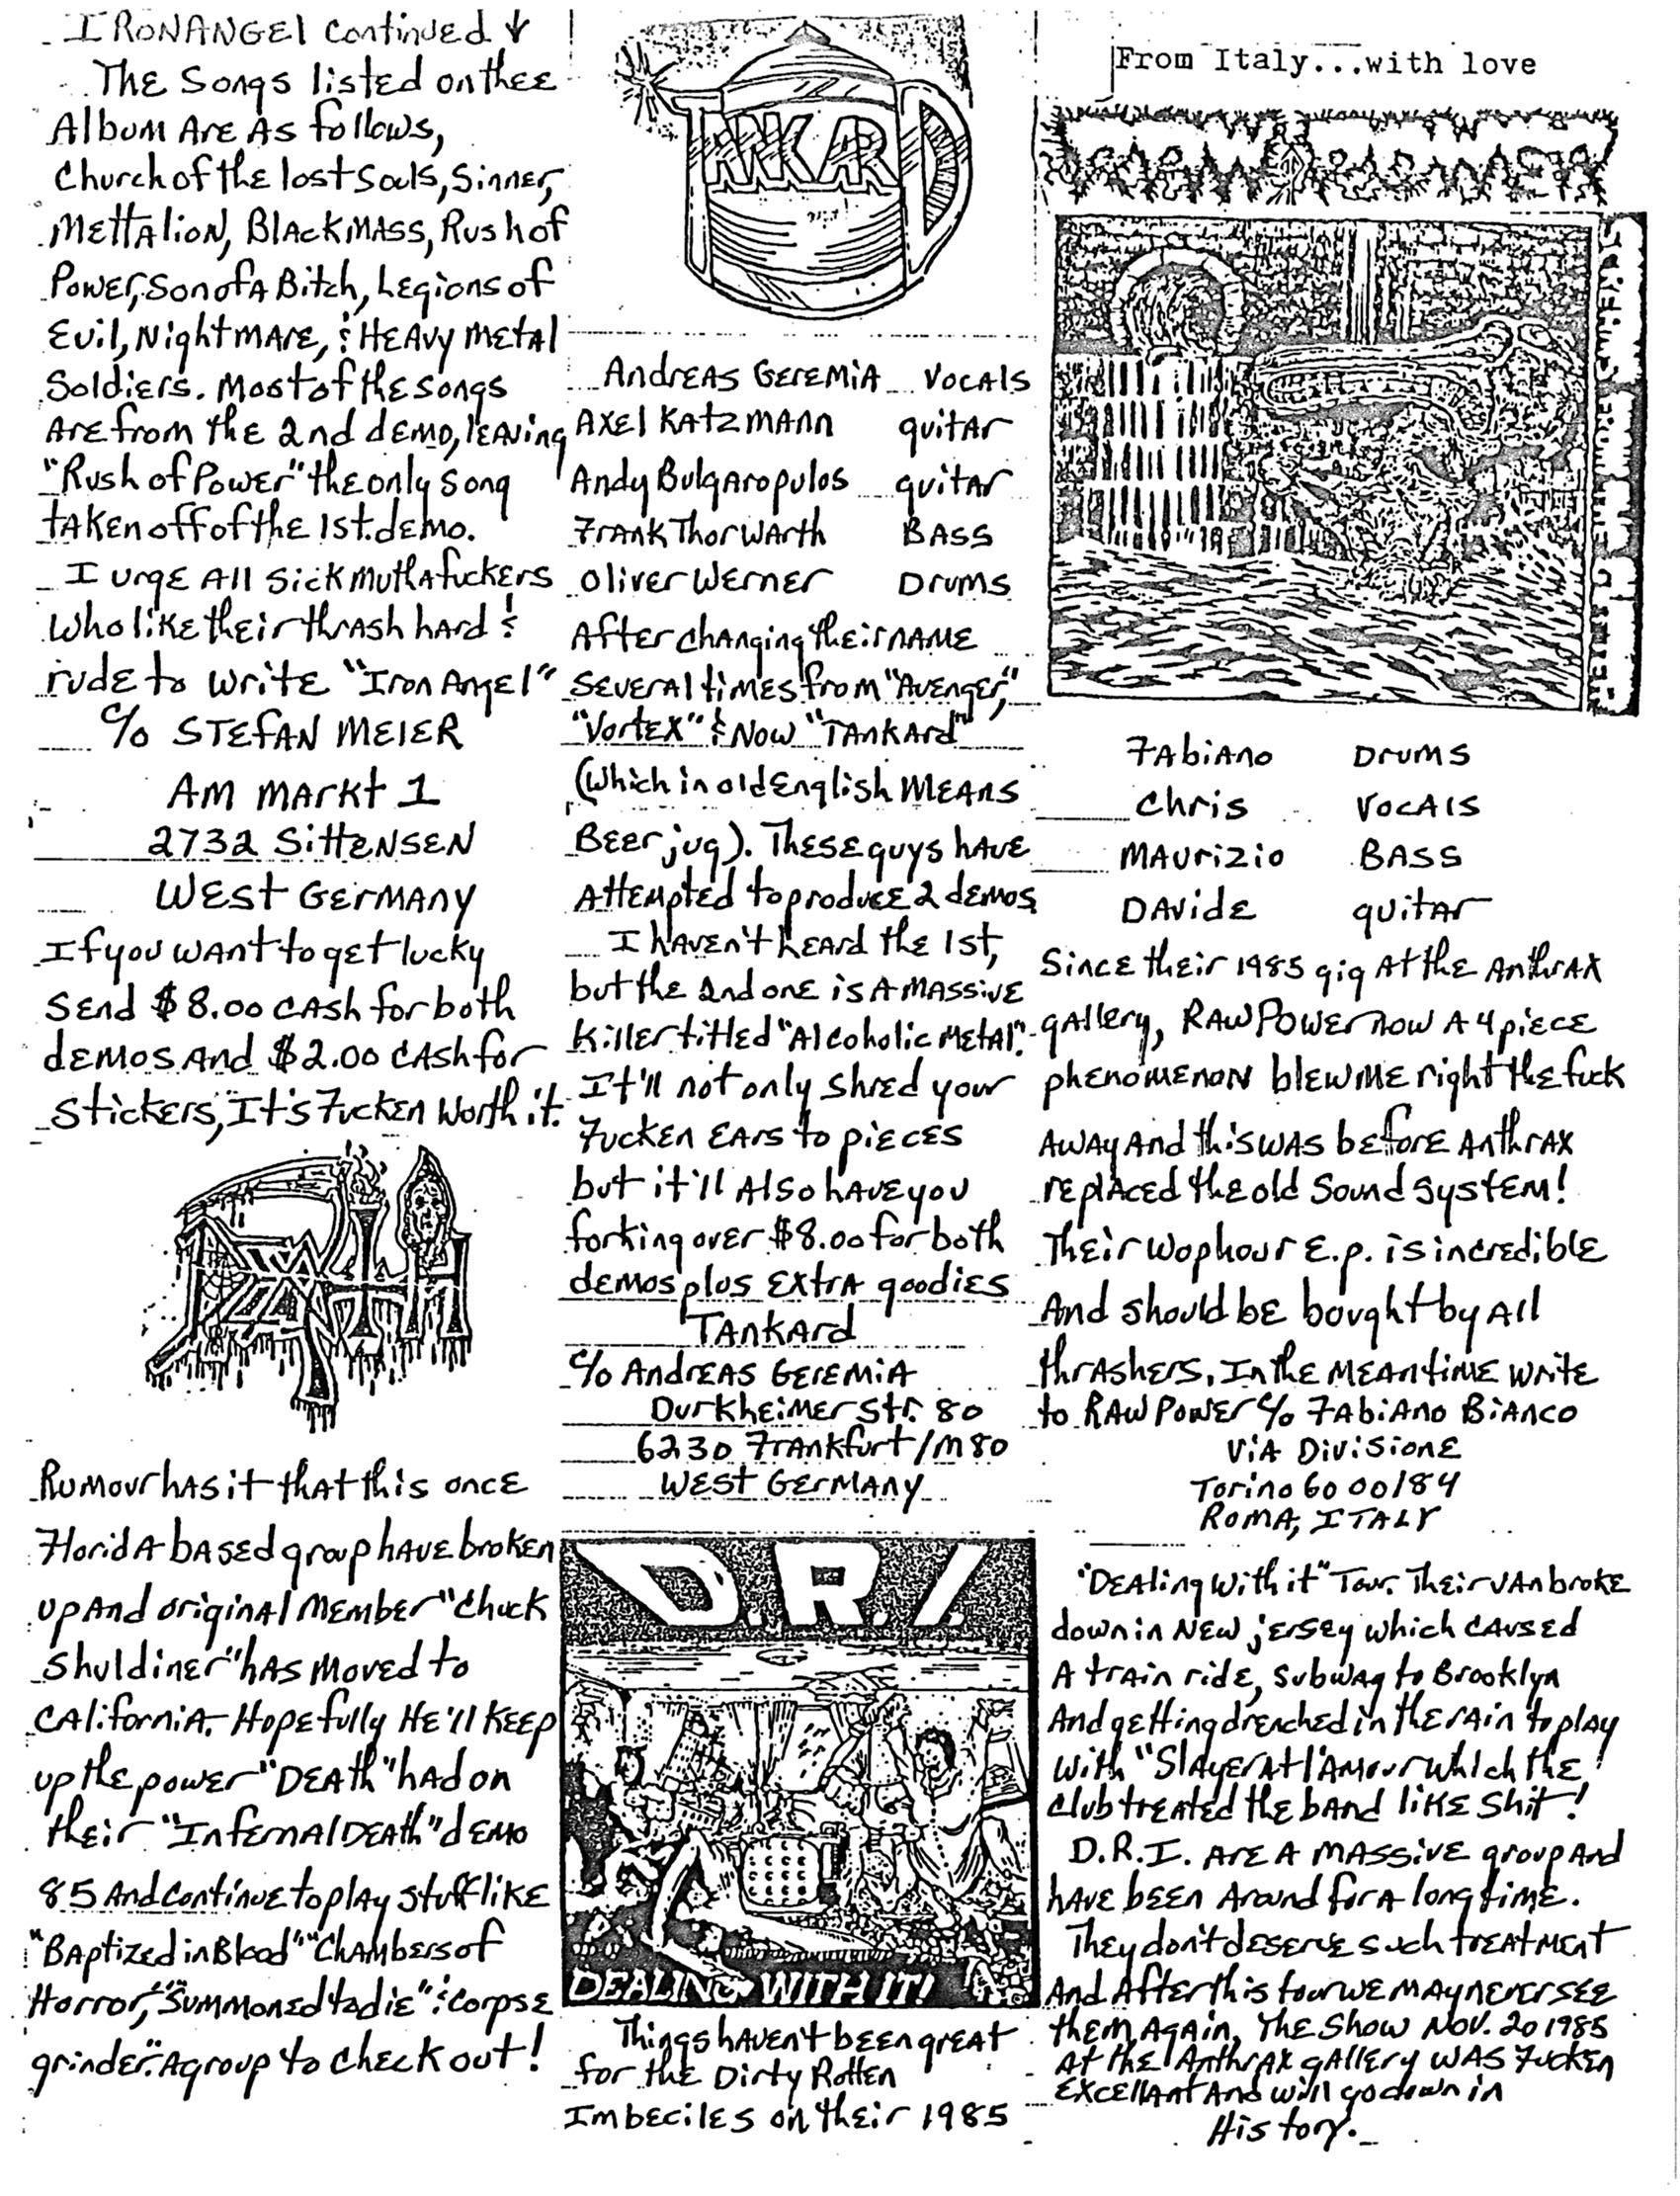 IRONANGEl continued ↓
The songs listed on thee
Album Are As follows,
Church of the lost Souls, Sinner,
MettAlioN, BlAck MAss, Rush of
Power, Son of A Bitch, Legions of
Evil, NightMAre, & HEAvy MetAl
Soldiers. Most of the songs
Are from the 2nd demo, leAving
"Rush of Power" the only song
tAken off of the 1st. demo.
I urge All sick muthAfuckers
Who like their thrAsh hArd &
rude to write "Iron Angel"
c/o STEfAN MEIER
AM MARkt 1
2732 SittENSEN
WESt GERMANy
If you wAnt to get lucky
send $8.00 cAsh for both
demos And $2.00 cAsh for
stickers, It's Fucken Worth it.
DEATH
Rumour hAs it thAt this once
FloridA bAsed group hAve broken
up And originAl Member "Chuck
Shuldiner" hAs moved to
CAliforniA. Hopefully He'll KEEp
up the power "DEAth" hAd on
their "InfernAl DEAth" demo
85 And continue to plAy stuff like
"BAptized in Blood" "ChAmbers of
Horror," "Summoned to die" & "Corpse
grinder." A group to check out!
TANKARD
AndreAs GeremiA VocAls
Axel KAtzmAnn guitAr
Andy BulgAropulos guitAr
FrAnk ThorwArth BAss
Oliver Werner Drums
After chAnging their nAme
severAl times from "Avenger,"
"Vortex" & Now "TAnkArd"
(Which in old English MEANS
Beer jug). These guys hAve
Attempted to produce 2 demos
I hAven't heArd the 1st,
but the 2nd one is A mAssive
Killer titled "Alcoholic MetAl".
It'll not only shred your
Fucken EArs to pieces
but it'll Also hAve you
forking over $8.00 for both
demos plus ExtrA goodies
TAnkArd
c/o AndreAs GeremiA
Durkheimer Str. 80
6230 FrAnkfurt/M80
WESt GERMANy
D.R.I.
DEALING WITH IT!
Things hAven't been greAt
for the Dirty Rotten
Imbeciles on their 1985
From Italy...with love
RAW POWER
FAbiAno Drums
Chris VocAls
MAurizio BAss
DAvide guitAr
Since their 1985 gig At the AnthrAx
gAllery, RAw Power now A 4 piece
phenomenoN blew me right the fuck
AwAy And this wAs before AnthrAx
replAced the old sound system!
Their wop hour E.p. is incredible
And should be bought by All
thrAshers. In the MEAntime write
to RAw Power c/o FAbiAno BiAnco
ViA Divisione
Torino 60 00184
ROMA, ITALY
"DEAling With it" Tour. Their vAn broke
down in New jersey which cAused
A trAin ride, subwAy to Brooklyn
And getting drenched in the rAin to plAy
with "SlAyer At l'Amour which the
club treAted the bAnd like shit!
D.R.I. Are A mAssive group And
hAve been Around for A long time.
They don't deserve such treAtment
And After this tour we mAy never see
them AgAin. The Show Nov. 20 1985
At the AnthrAx gAllery wAs Fucken
ExcellAnt And will go down in
History.